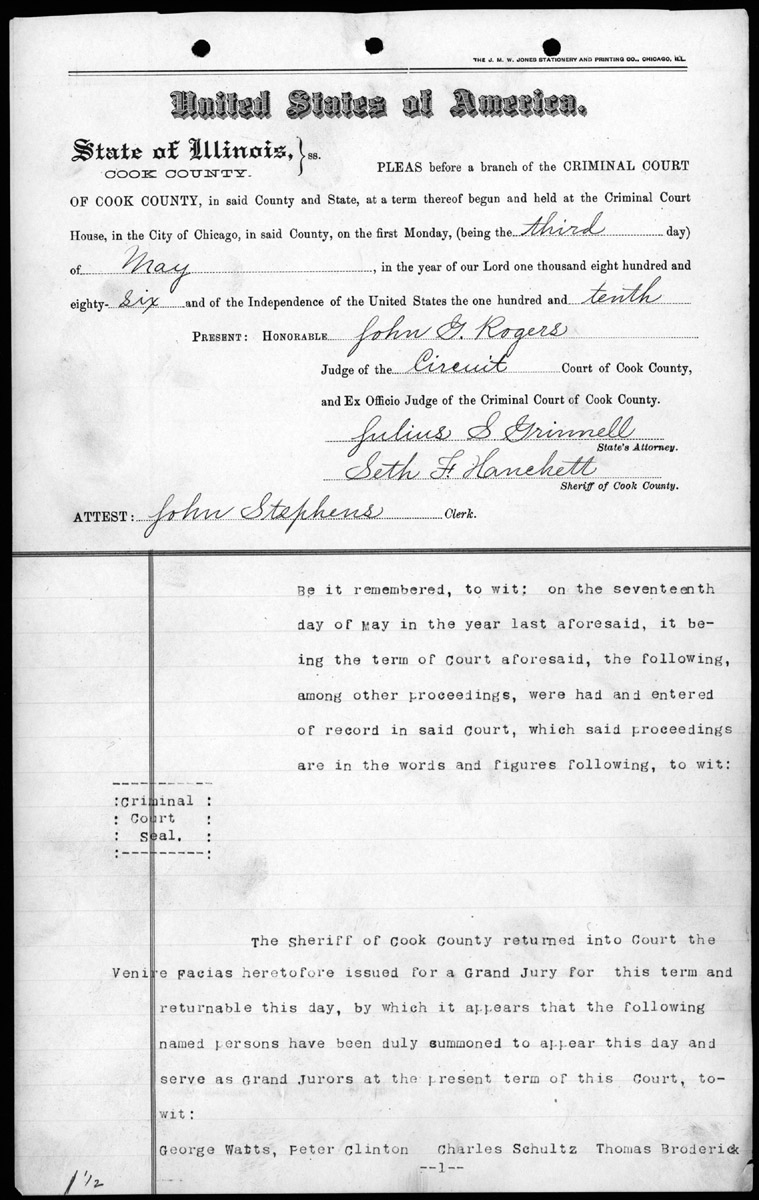 THE J. M. W. JONES STATIONERY AND PRINTING CO., CHICAGO, ILL.
United States of America.
State of Illinois, } ss.
COOK COUNTY.
PLEAS before a branch of the CRIMINAL COURT
OF COOK COUNTY, in said County and State, at a term thereof begun and held at the Criminal Court
House, in the City of Chicago, in said County, on the first Monday, (being the third day)
of May, in the year of our Lord one thousand eight hundred and
eighty-six and of the Independence of the United States the one hundred and tenth
PRESENT: HONORABLE John G. Rogers
Judge of the Circuit Court of Cook County,
and Ex Officio Judge of the Criminal Court of Cook County.
Julius S Grinnell
State's Attorney.
Seth F. Hanchett
Sheriff of Cook County.
ATTEST: John Stephens Clerk.
Be it remembered, to wit: on the seventeenth
day of May in the year last aforesaid, it be-
ing the term of Court aforesaid, the following,
among other proceedings, were had and entered
of record in said Court, which said proceedings
are in the words and figures following, to wit:
:Criminal :
: Court :
: Seal. :
The Sheriff of Cook County returned into Court the
Venire Facias heretofore issued for a Grand Jury for this term and
returnable this day, by which it appears that the following
named persons have been duly summoned to appear this day and
serve as Grand Jurors at the present term of this Court, to-
wit:
George Watts, Peter Clinton Charles Schultz Thomas Broderick
--1--
1 1/2